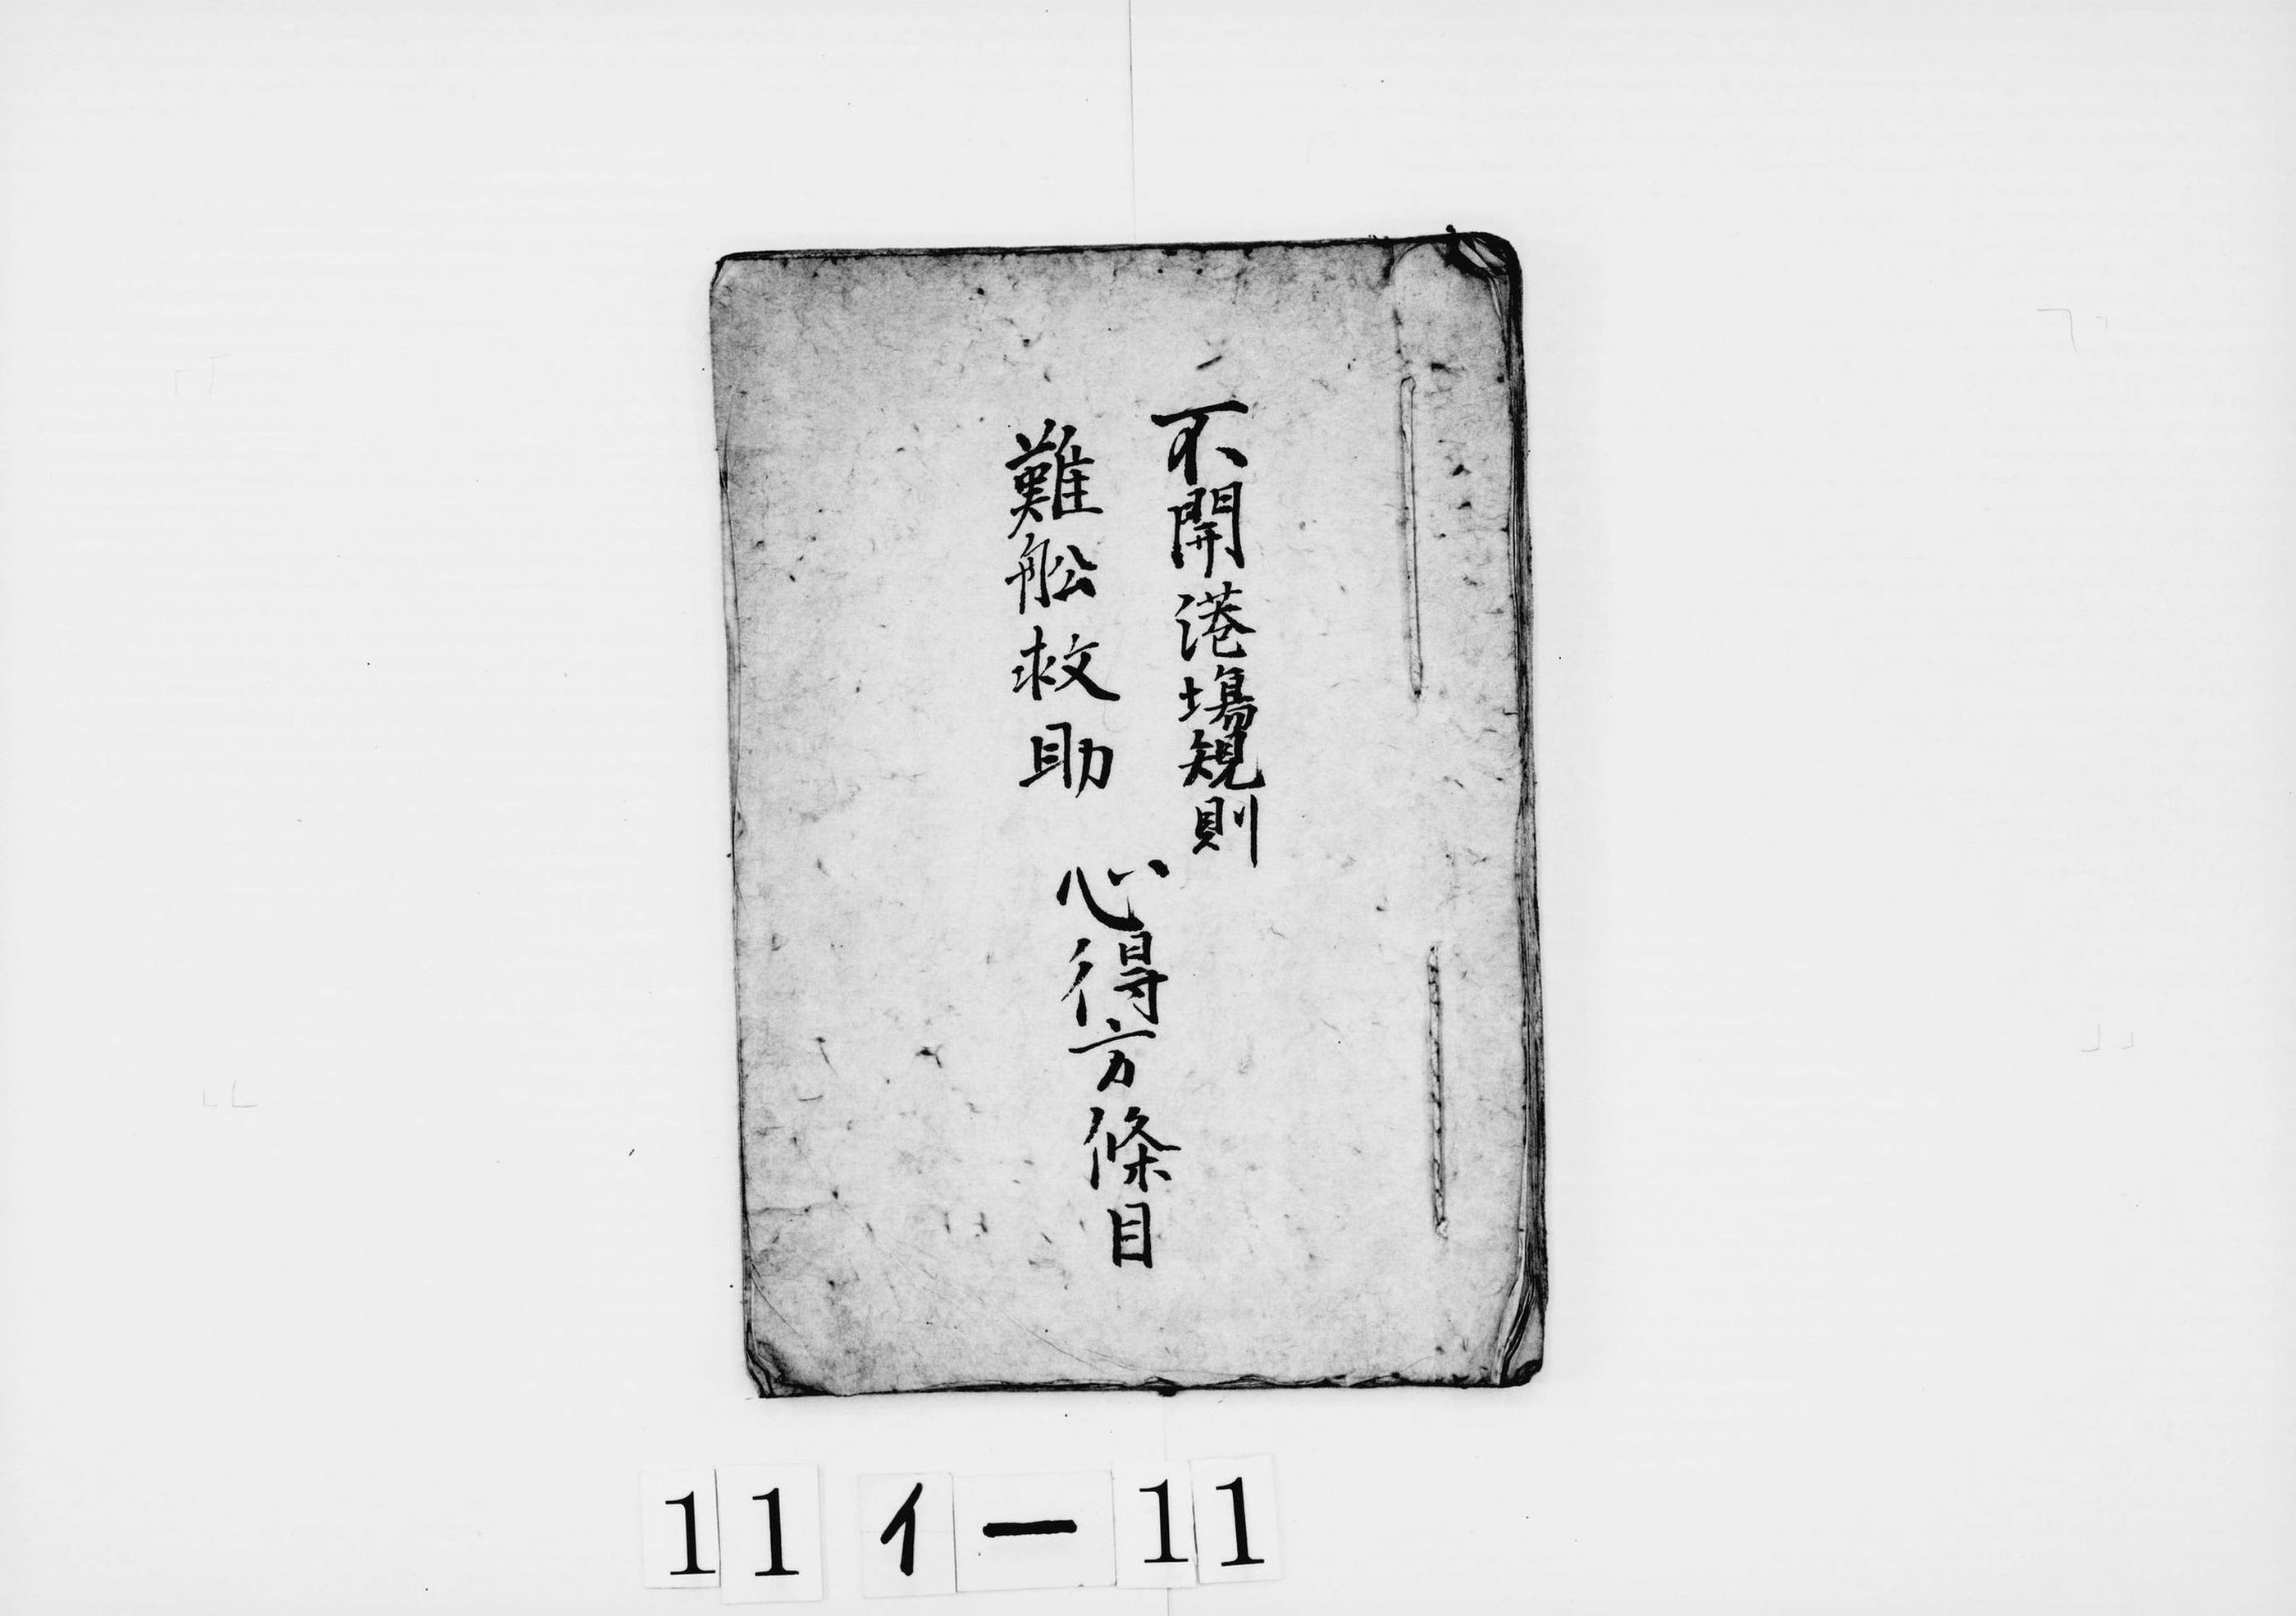 不開港場規則
難舩救助
心得方條目
11イ-11